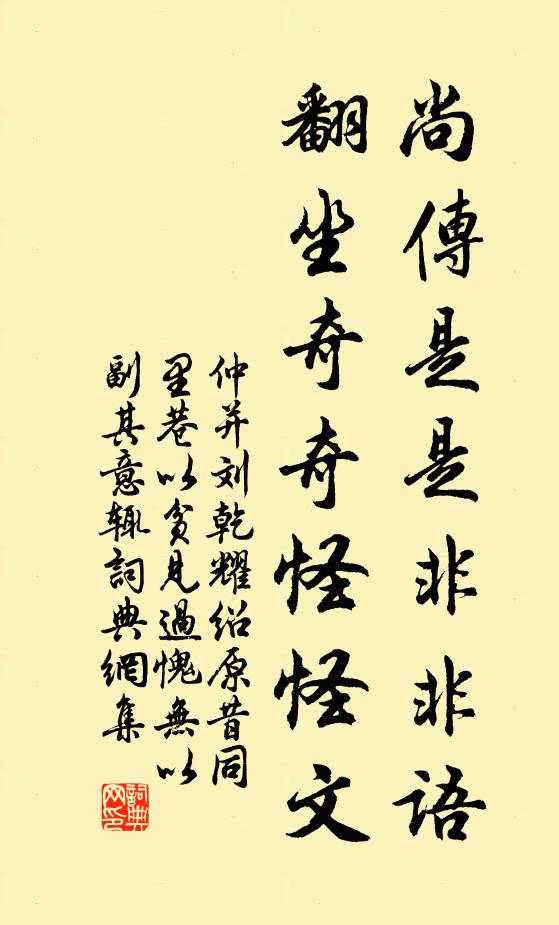 尚傳是是非非語
翻坐奇奇怪怪文
仲并刘乾耀绍原昔同
里巷以貧見過愧無以
副其意辄詞典網集
詞典网印